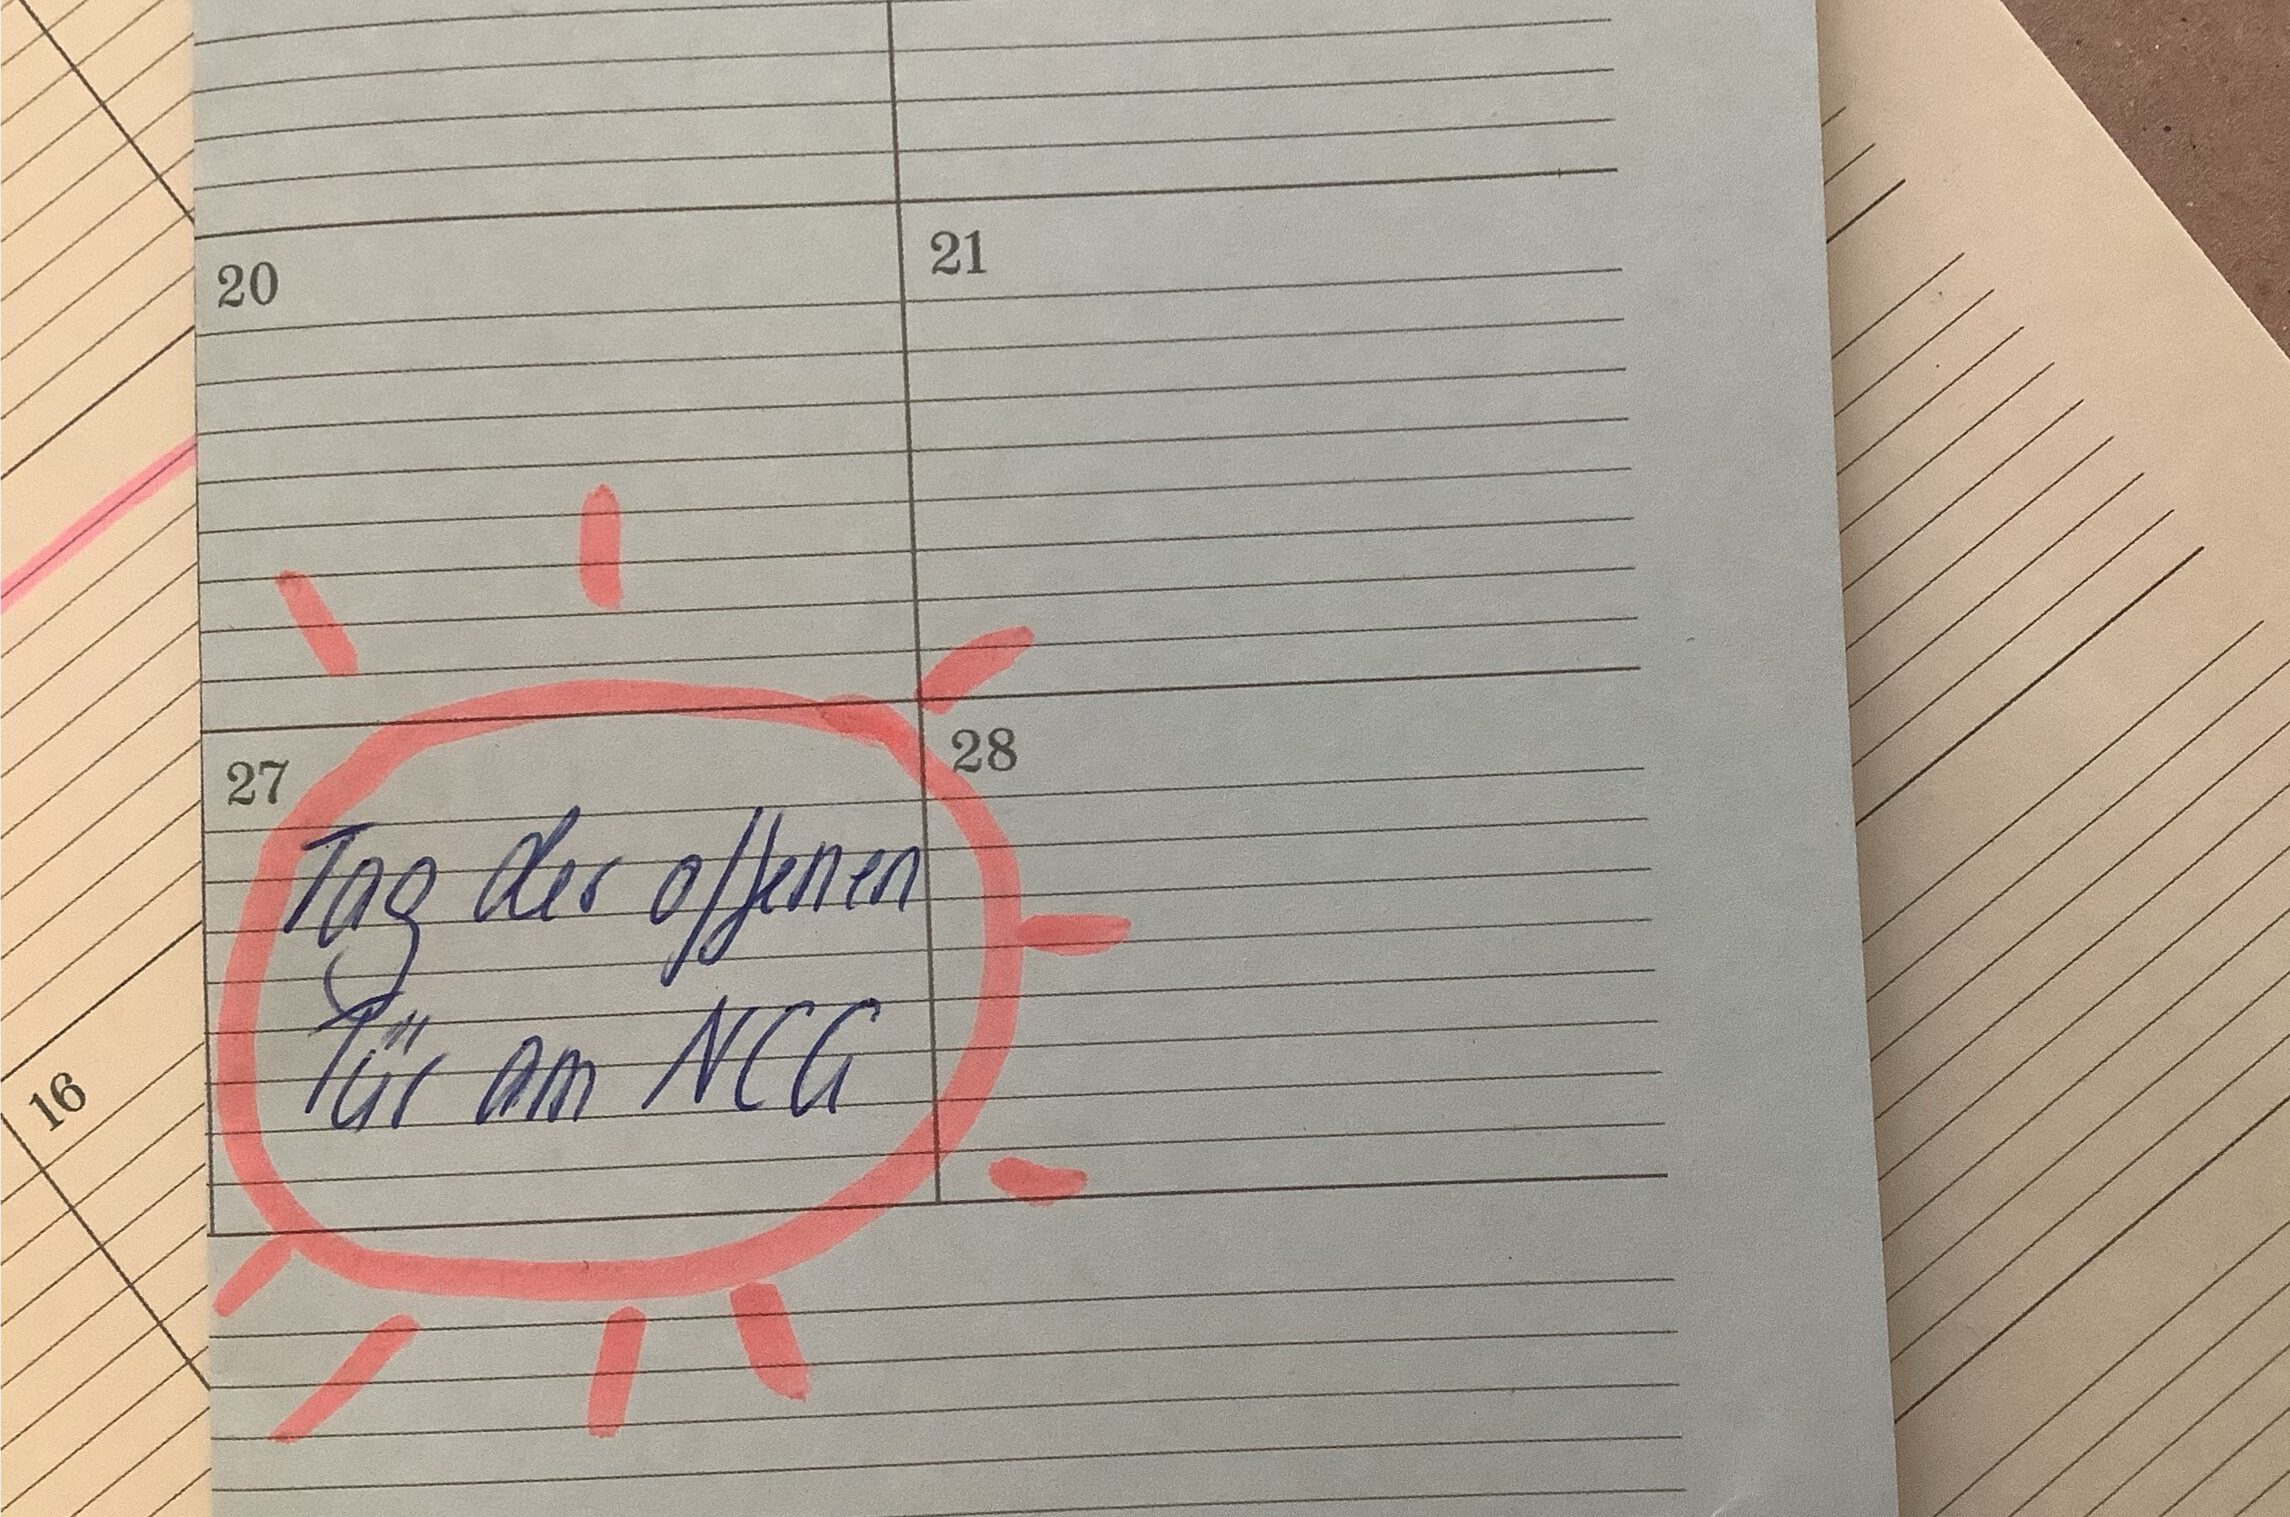 20
21
27
28
Tag der offenen
Tür am NCG
16